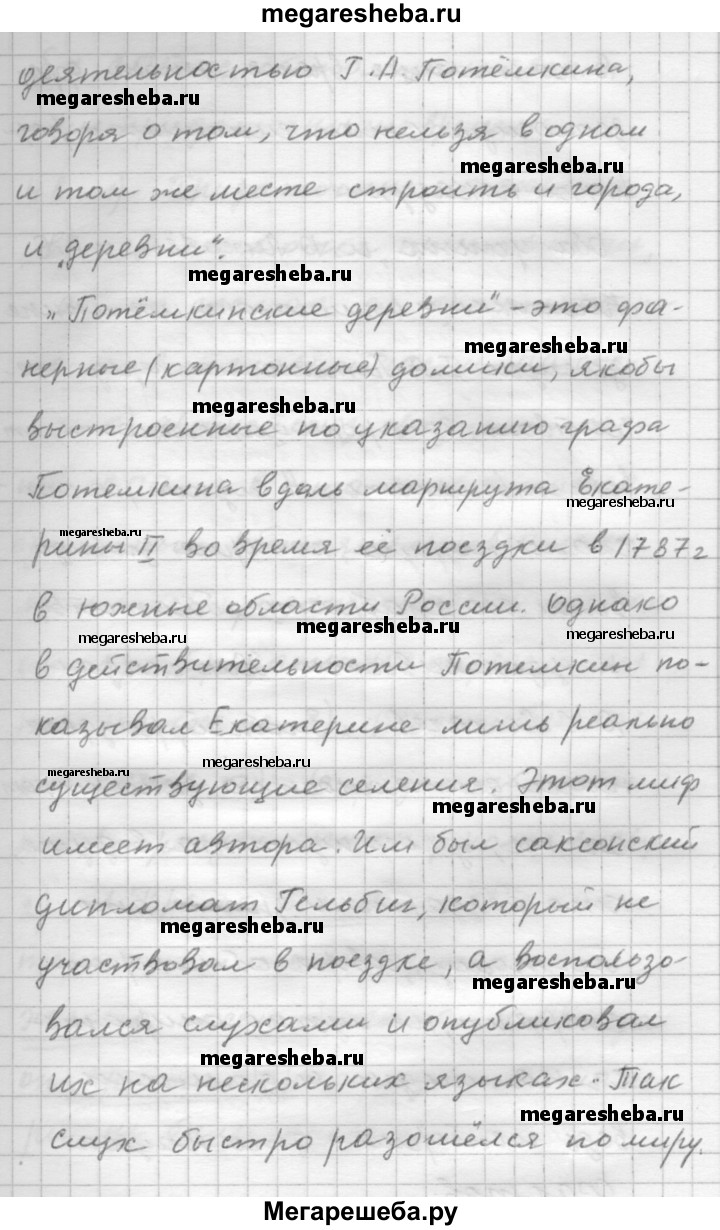 megaresheba.ru
деятельностью Г.А. Потёмкина,
megaresheba.ru
говоря о том, что нельзя в одном
megaresheba.ru
и том же месте строить и города,
и „деревни“.
megaresheba.ru
„Потёмкинские деревни" - это фа-
megaresheba.ru
нерные (картонные) домики, якобы
megaresheba.ru
выстроенные по указанию графа
Потемкина вдоль маршрута Екате-
megaresheba.ru
megaresheba.ru
рины II во время её поездки в 1787г
в южные области России. Однако
megaresheba.ru
megaresheba.ru
megaresheba.ru
в действительности Потемкин по-
казывал Екатерине лишь реально
megaresheba.ru
megaresheba.ru
существующие селения. Этот миф
megaresheba.ru
имеет автора. Им был саксонский
дипломат Гельбиг, который не
megaresheba.ru
участвовал в поездке, а воспользо-
megaresheba.ru
вался слухами и опубликовал
megaresheba.ru
их на нескольких языках. Так
megaresheba.ru
слух быстро разошёлся по миру.
Мегарешеба.ру